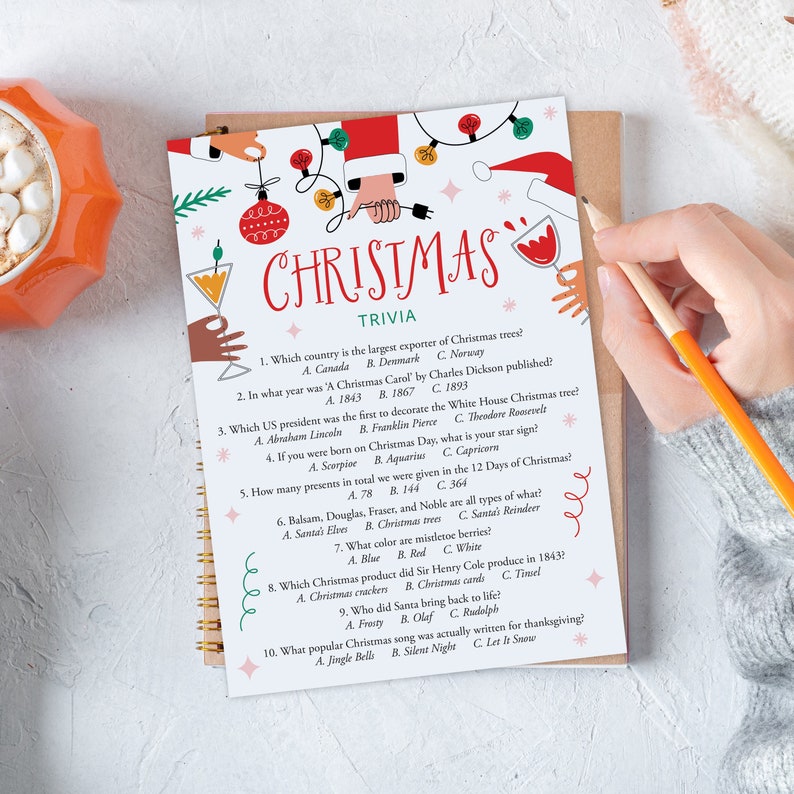 CHRISTMAS
TRIVIA
1. Which country is the largest exporter of Christmas trees?
A. Canada B. Denmark C. Norway
2. In what year was ‘A Christmas Carol’ by Charles Dickson published?
A. 1843 B. 1867 C. 1893
3. Which US president was the first to decorate the White House Christmas tree?
A. Abraham Lincoln B. Franklin Pierce C. Theodore Roosevelt
4. If you were born on Christmas Day, what is your star sign?
A. Scorpioe B. Aquarius C. Capricorn
5. How many presents in total we were given in the 12 Days of Christmas?
A. 78 B. 144 C. 364
6. Balsam, Douglas, Fraser, and Noble are all types of what?
A. Santa's Elves B. Christmas trees C. Santa's Reindeer
7. What color are mistletoe berries?
A. Blue B. Red C. White
8. Which Christmas product did Sir Henry Cole produce in 1843?
A. Christmas crackers B. Christmas cards C. Tinsel
9. Who did Santa bring back to life?
A. Frosty B. Olaf C. Rudolph
10. What popular Christmas song was actually written for thanksgiving?
A. Jingle Bells B. Silent Night C. Let It Snow